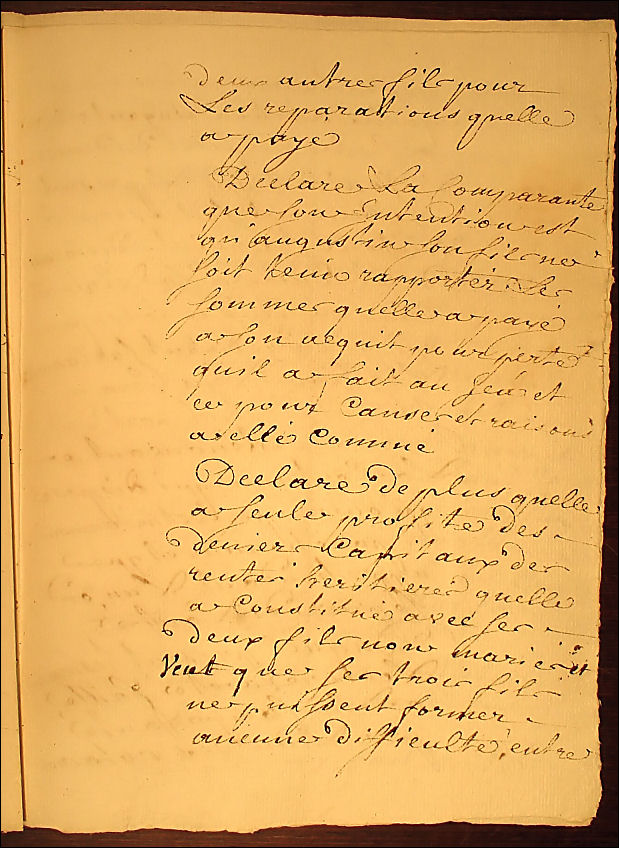 deux autres fils pour
Les reparations quelle
a payé
Declare La Comparante
que son Intention est
qu'augustin son fils ne
soit tenu rapporter Les
sommes quelle a payé
a son acquit pour perte
quil a fait au Jeu et
ce pour Causes et raisons
a elle Connue
Declare de plus quelle
a seule profité des
deniers Capitaux des
rentes heritieres quelle
a Constitué avec ses
deux fils non mariés et
Veut que ses trois fils
ne puissent former
aucune difficulté, entre